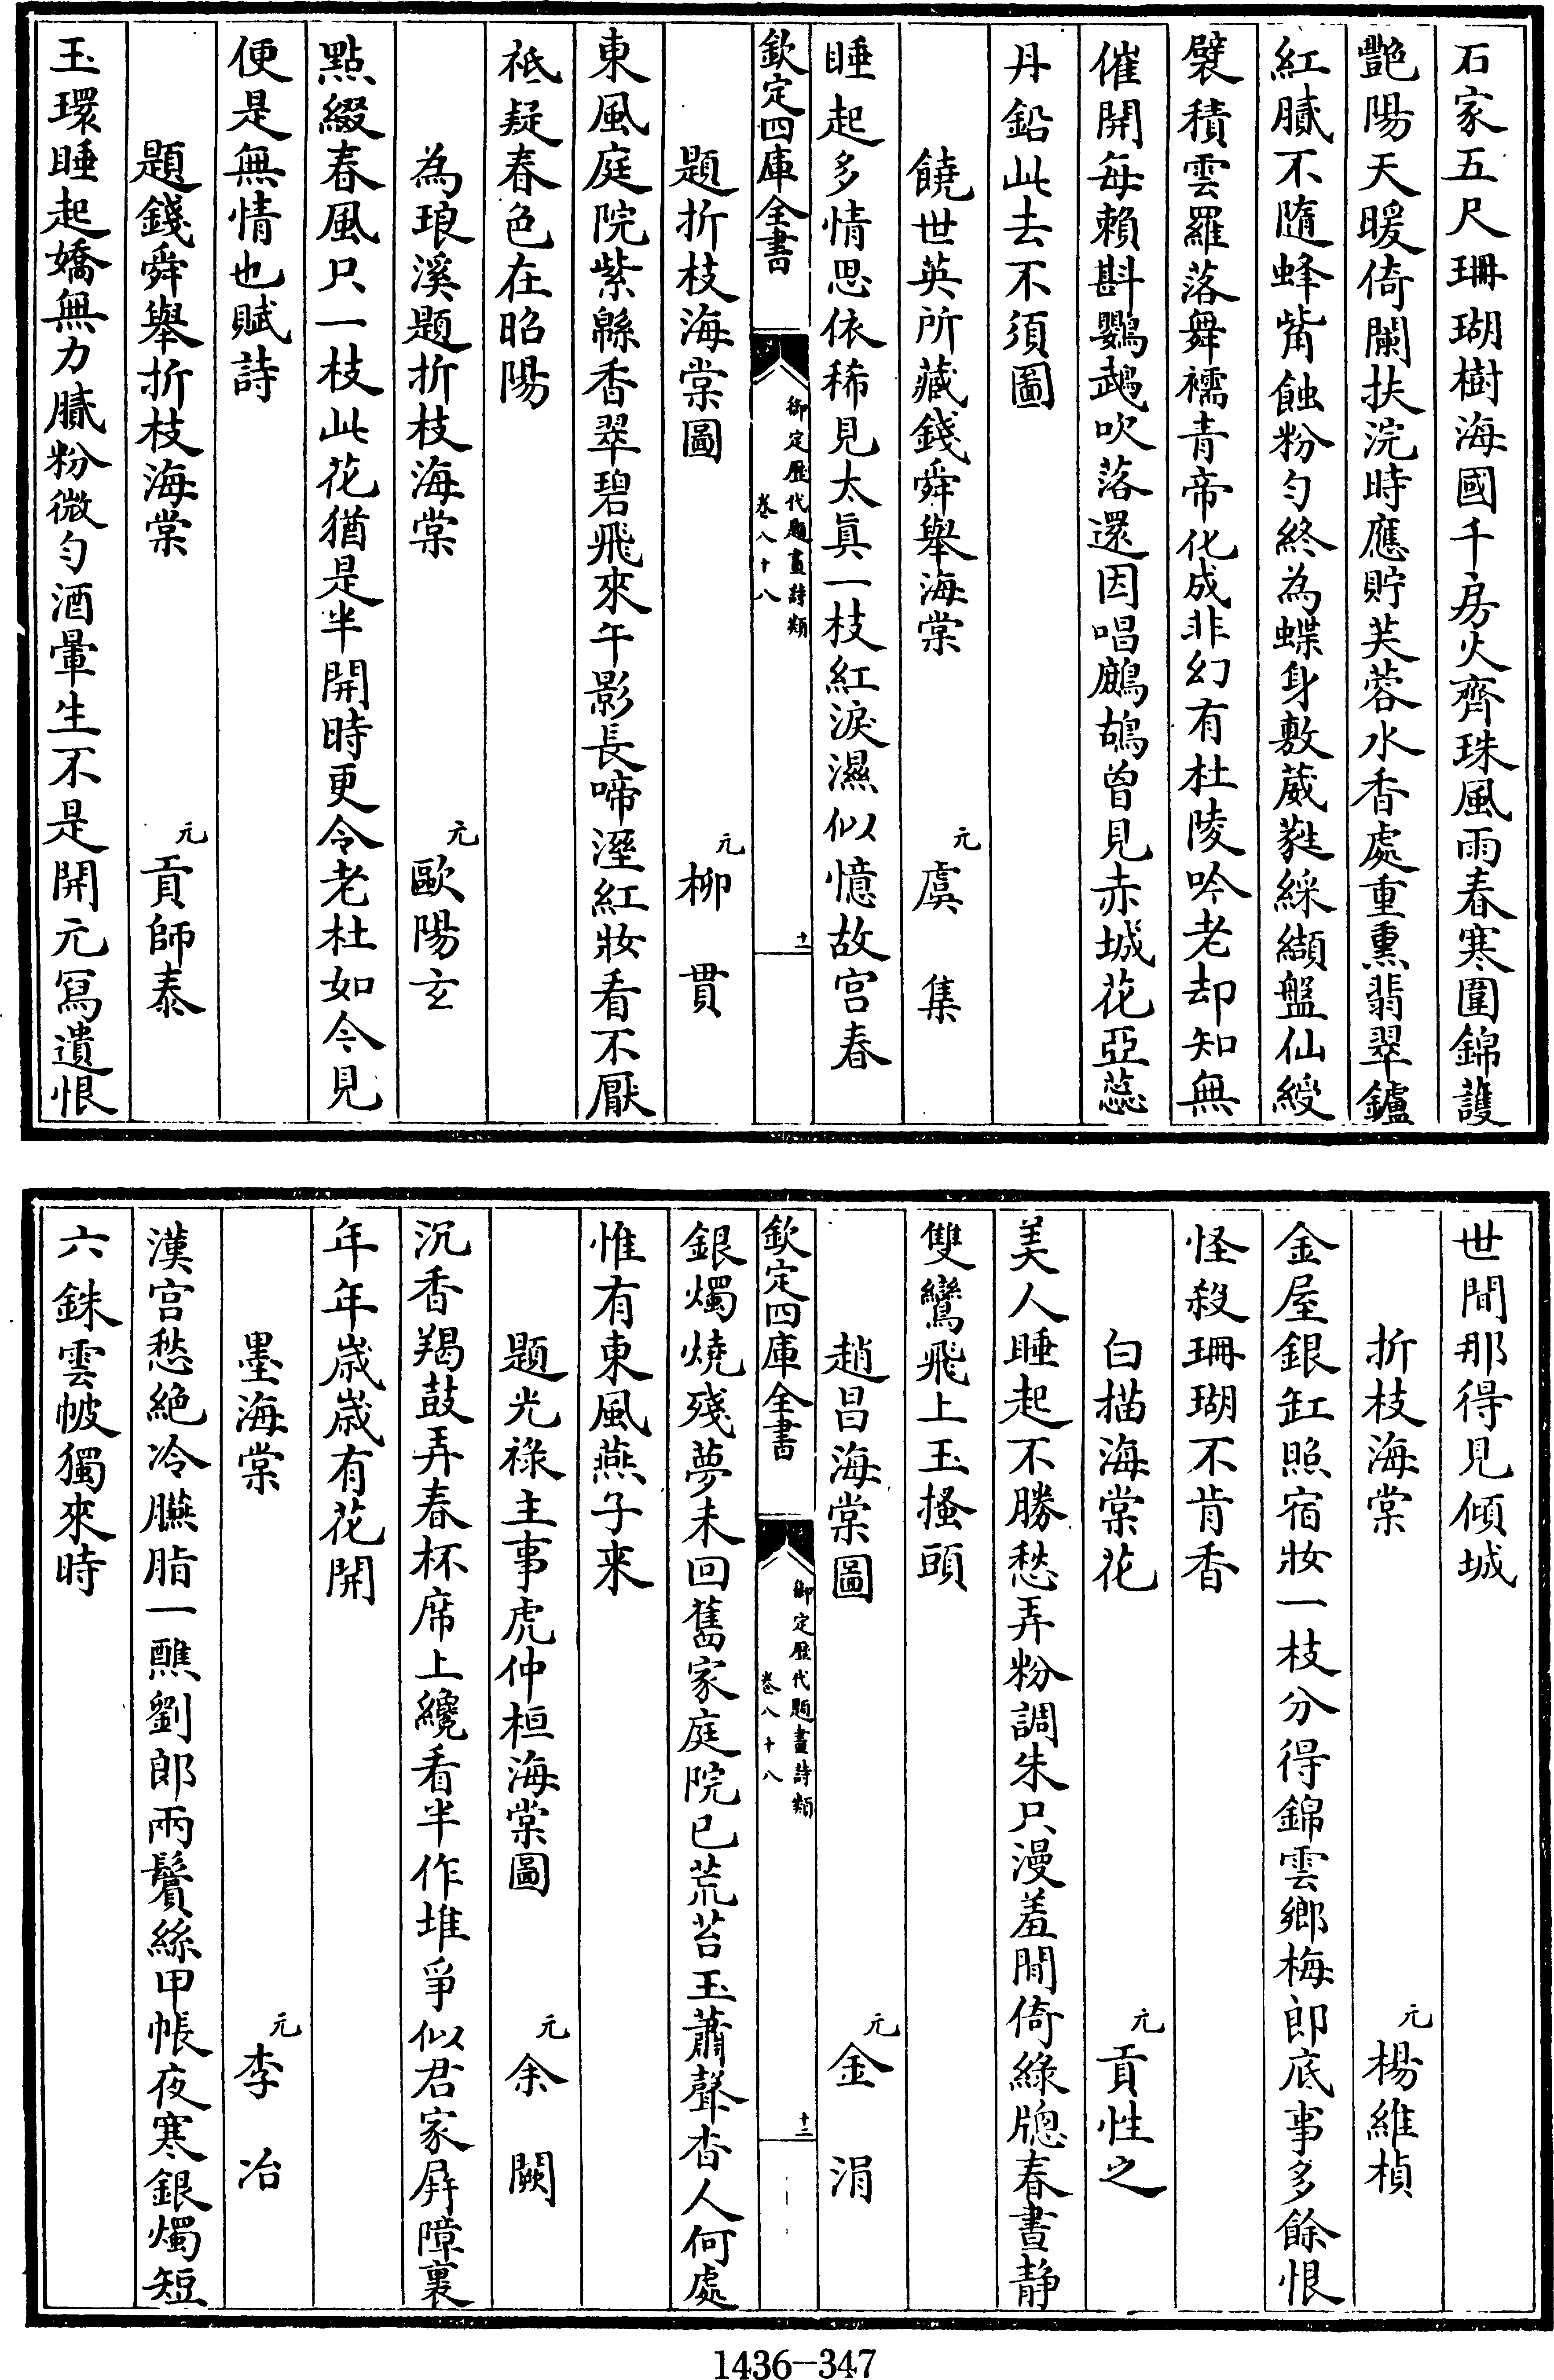 石家五尺珊瑚樹海國千房火齊珠風雨春寒圍錦䕶
艷陽天暖倚闌扶浣時應貯芙蓉水香處重熏翡翠鑪
紅膩不隨蜂觜蝕粉勻終為蝶身敷葳蕤綵纈盤仙綬
襞積雲羅落舞襦青帝化成非幻有杜陵吟老却知無
催開每賴斟鸚鵡吹落還因唱鷓鴣曾見赤城花亞蕊
丹鉛此去不須圖
饒世英所藏錢舜舉海棠 元 虞集
睡起多情思依稀見太真一枝紅淚濕似憶故宮春
欽定四庫全書 御定歷代題畫詩類 卷八十八 十一
題折枝海棠圖 元 柳貫
東風庭院紫緜香翠碧飛來午影長啼溼紅妝看不厭
祗疑春色在昭陽
為琅溪題折枝海棠 元 歐陽玄
點綴春風只一枝此花猶是半開時更令老杜如今見
便是無情也賦詩
題錢舜舉折枝海棠 元 貢師泰
玉環睡起嬌無力膩粉微勻酒暈生不是開元寫遺恨
世間那得見傾城
折枝海棠 元 楊維楨
金屋銀缸照宿妝一枝分得錦雲鄉梅郎底事多餘恨
怪殺珊瑚不肯香
白描海棠花 元 貢性之
美人睡起不勝愁弄粉調朱只漫羞閒倚綠牕春晝静
雙鸞飛上玉搔頭
趙昌海棠圖 元 金涓
欽定四庫全書 御定歷代題畫詩類 卷八十八 十二
銀燭燒殘夢未回舊家庭院已荒苔玉蕭聲杳人何處
惟有東風燕子来
題光祿主事虎仲桓海棠圖 元 余闕
沉香羯鼓弄春杯席上纔看半作堆爭似君家屏障裏
年年歲歲有花開
墨海棠 元 李冶
漢宮愁絕冷臙脂一醮劉郎兩鬢絲甲帳夜寒銀燭短
六銖雲帔獨來時
1436-347